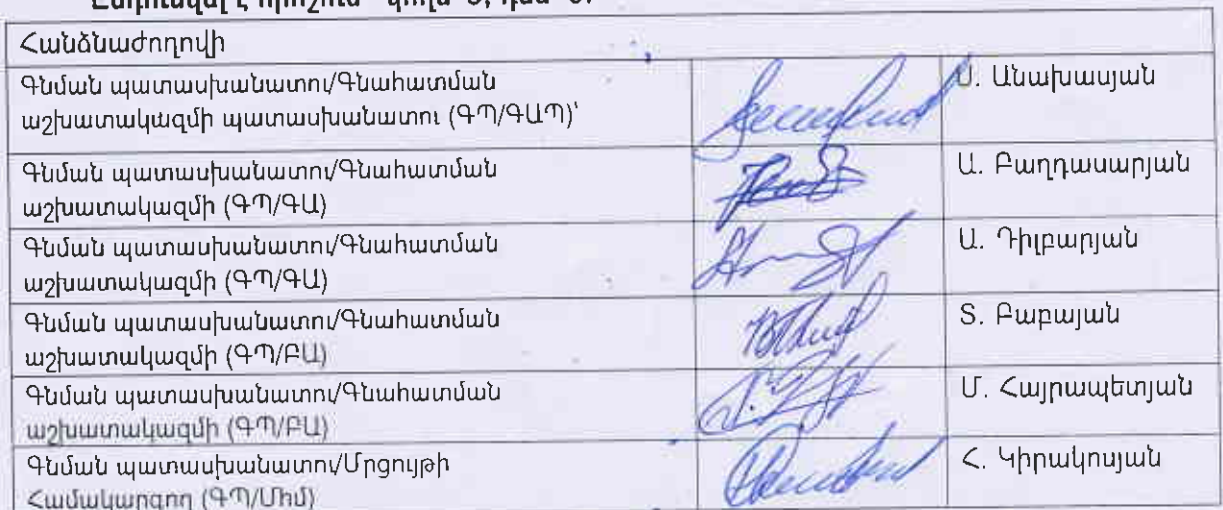 Հանձնաժողովի
Գնման պատասխանատու/Գնահատման
աշխատակազմի պատասխանատու (ԳՊ/ԳԱՊ)՝
Անախասյան
Գնման պատասխանատու/Գնահատման
աշխատակազմի (ԳՊ/ԳԱ)
Ա. Բաղդասարյան
Գնման պատասխանատու/Գնահատման
աշխատակազմի (ԳՊ/ԳԱ)
Ա. Դիլբարյան
Գնման պատասխանատու/Գնահատման
աշխատակազմի (ԳՊ/ԲԱ)
Տ. Բաբայան
Գնման պատասխանատու/Գնահատման
աշխատակազմի (ԳՊ/ԲԱ)
Մ. Հայրապետյան
Գնման պատասխանատու/Մրցույթի
Համակարգող (ԳՊ/Մհմ)
Հ. Կիրակոսյան